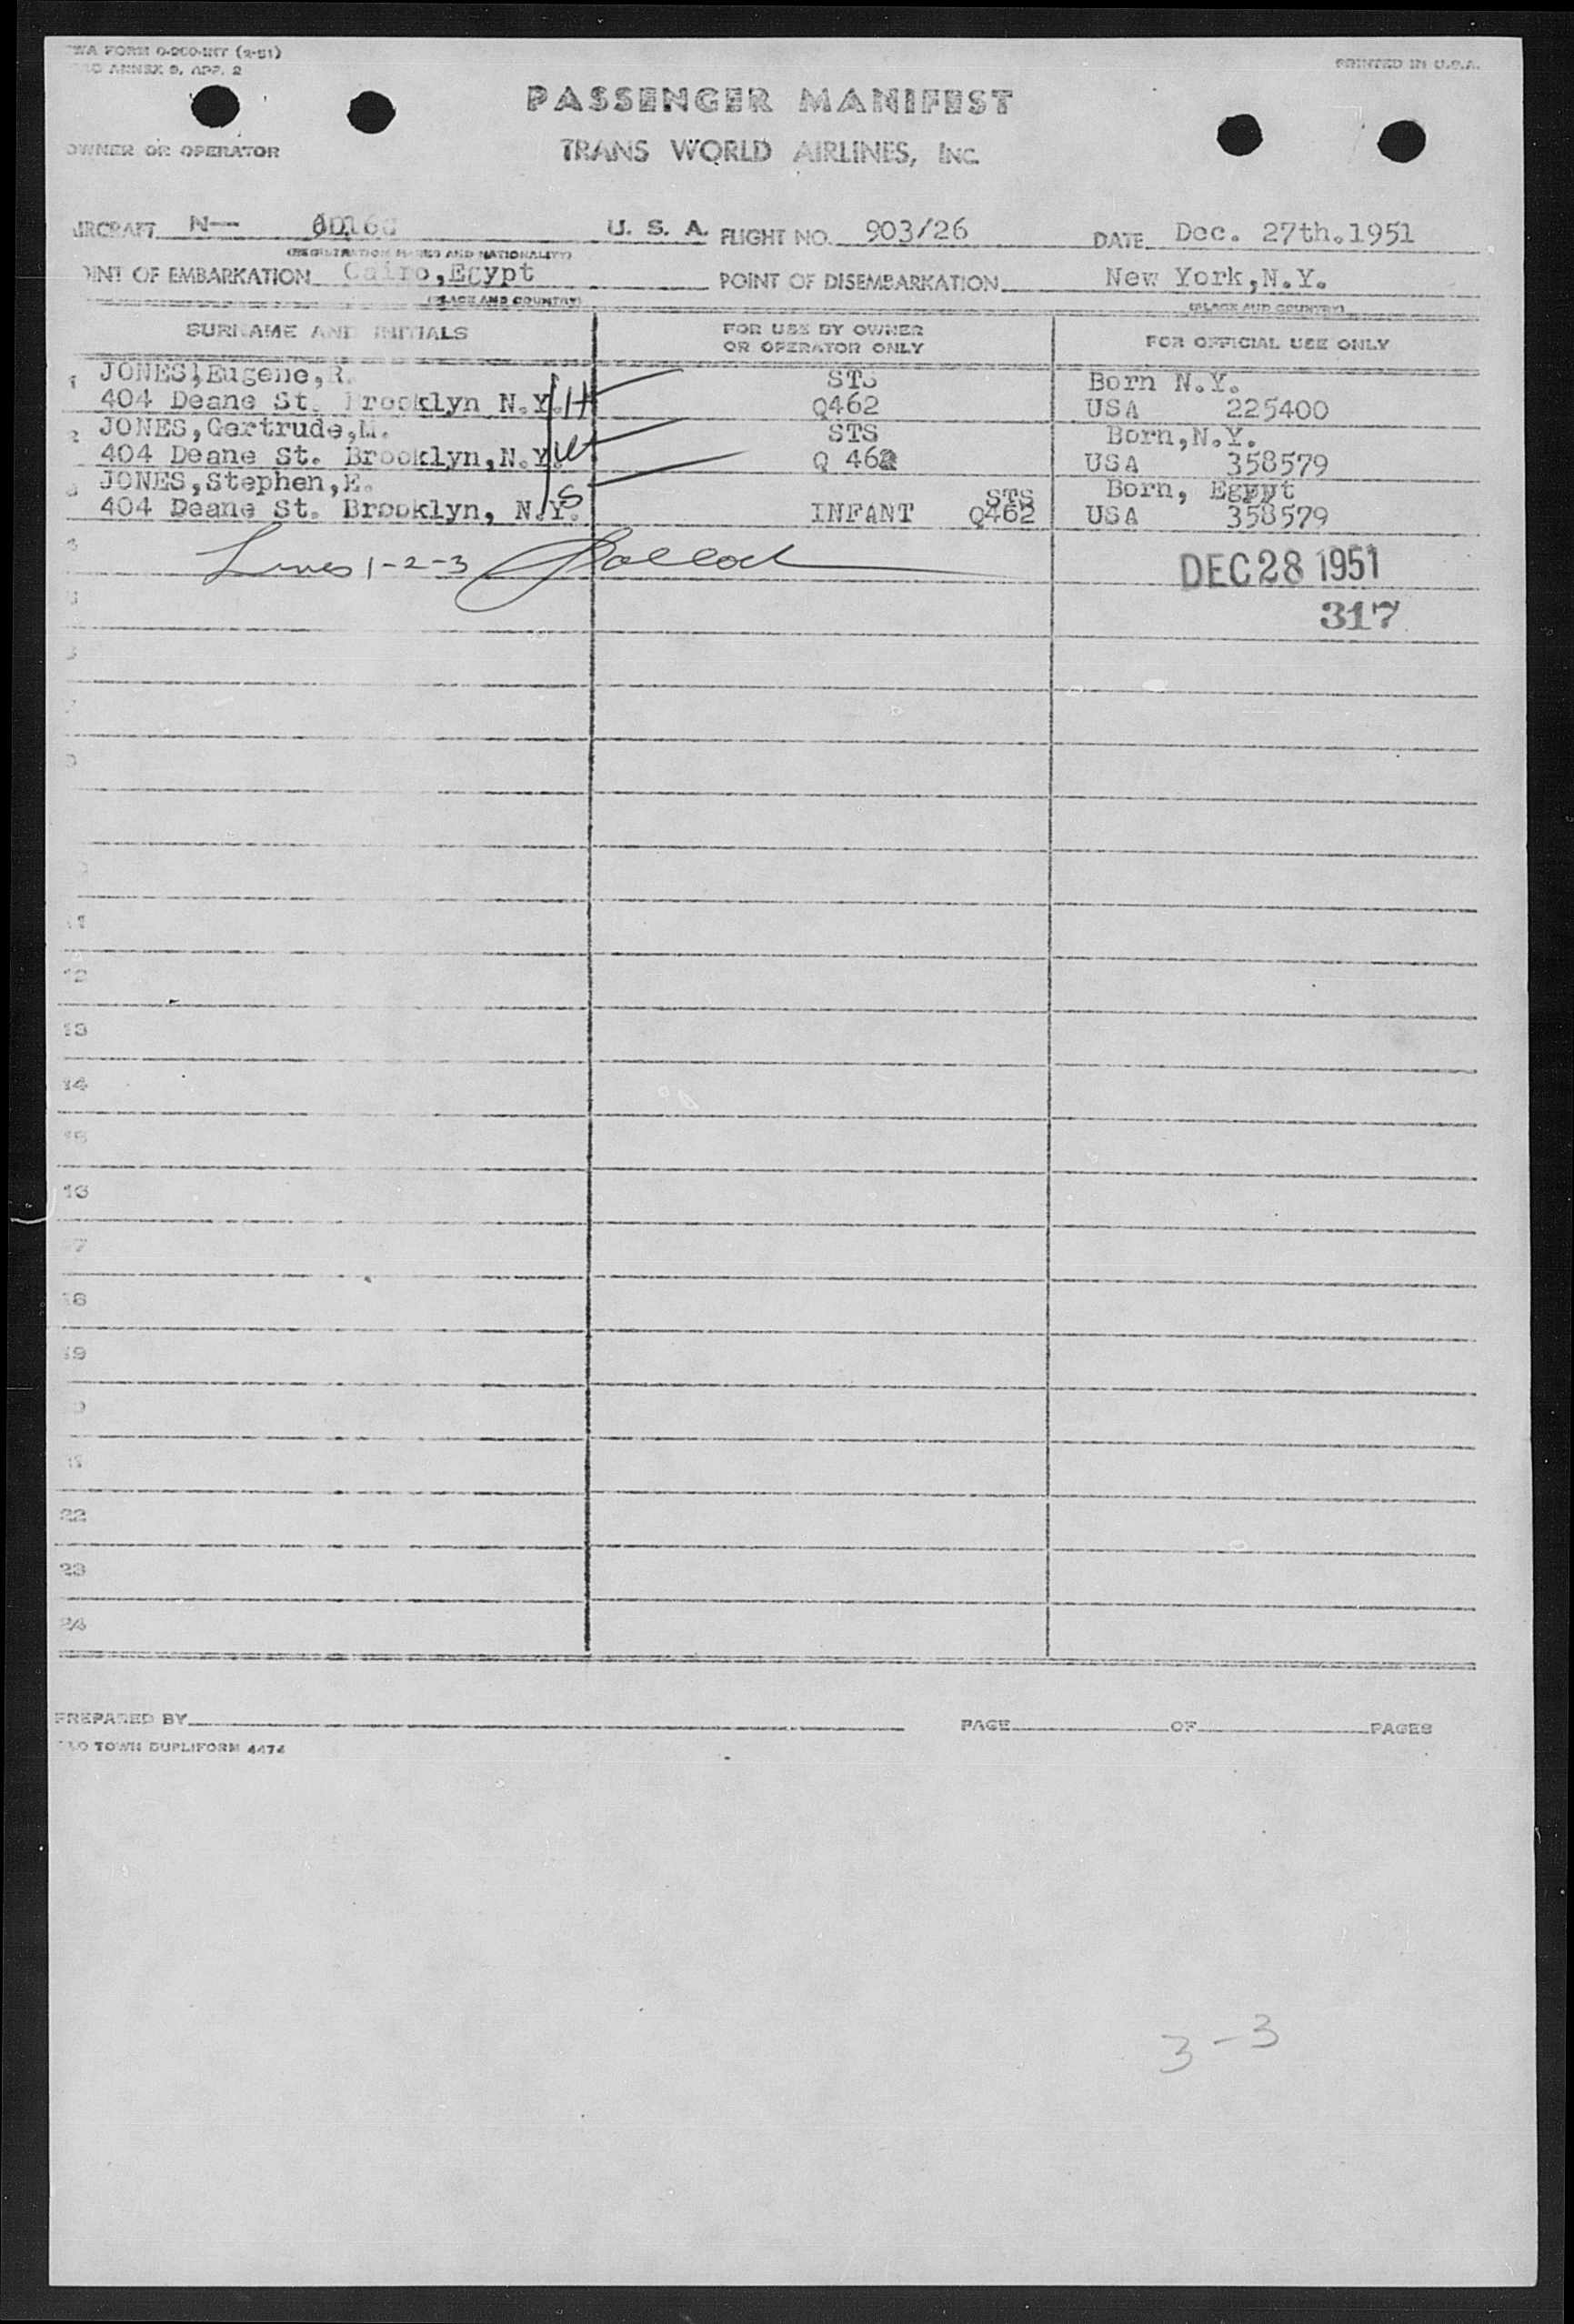 TWA FORM O-260-INT (2-51)
ANNEX 9, APP. 2
PRINTED IN U.S.A.
PASSENGER MANIFEST
OWNER OR OPERATOR
TRANS WORLD AIRLINES, INC.
AIRCRAFT N— U. S. A. FLIGHT NO. 903/26 DATE Dec. 27th.1951
(REGISTRATION MARKS AND NATIONALITY)
POINT OF EMBARKATION Cairo,Egypt POINT OF DISEMBARKATION New York,N.Y.
(PLACE AND COUNTRY) (PLACE AND COUNTRY)
SURNAME AND INITIALS FOR USE BY OWNER OR OPERATOR ONLY FOR OFFICIAL USE ONLY
1 JONES,Eugene,R. STS Born N.Y.
404 Deane St. Brooklyn N.Y. H Q462 USA 225400
2 JONES,Gertrude,M. STS Born,N.Y.
404 Deane St. Brooklyn,N.Y. W Q 462 USA 358579
3 JONES,Stephen,E. STS Born, Egypt
404 Deane St. Brooklyn, N.Y. S INFANT Q462 USA 358579
Lines 1-2-3
DEC 28 1951
317
11
12
13
14
15
16
17
18
19
22
23
24
PREPARED BY PAGE OF PAGES
TOWN DUPLIFORM 4474
3-3